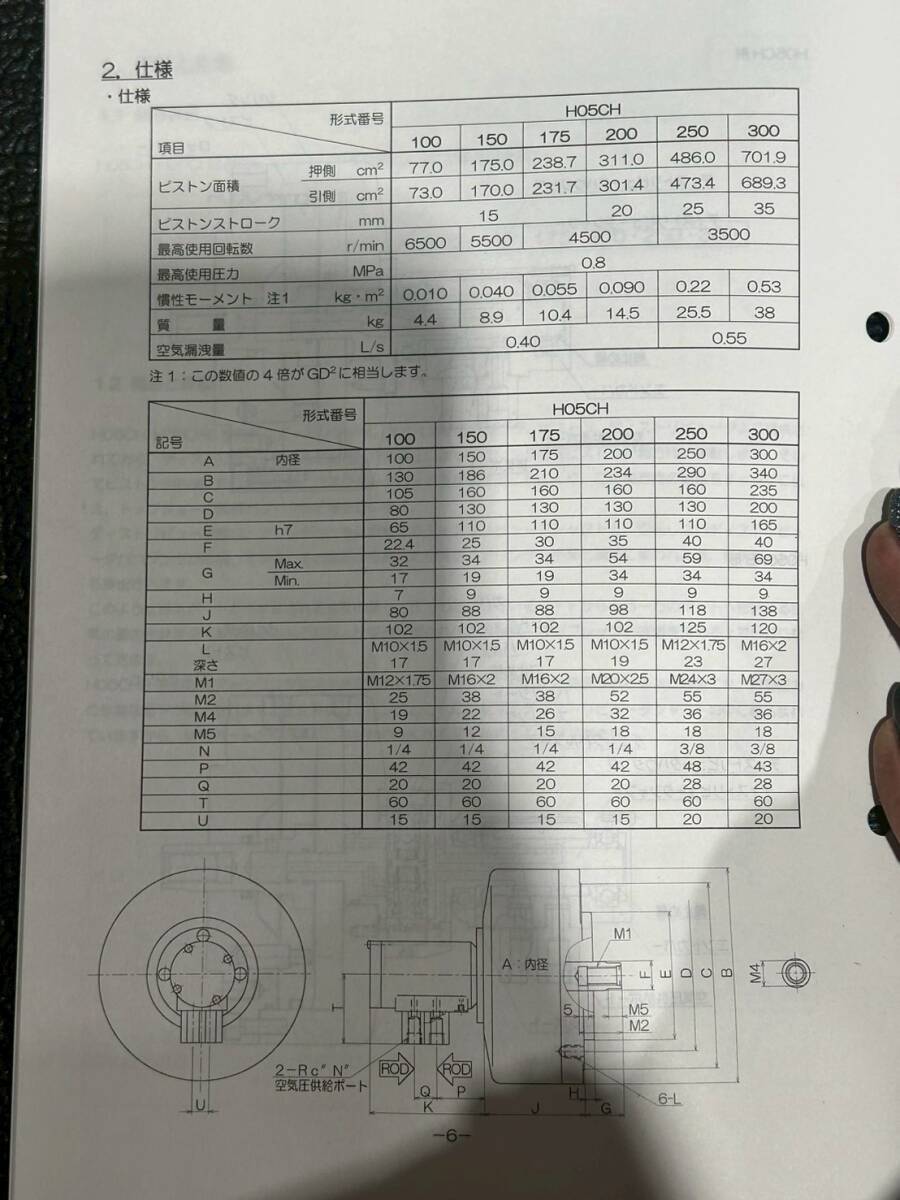 2. 仕様
・仕様
形式番号 H05CH
項目 100 150 175 200 250 300
ピストン面積 押側 cm² 77.0 175.0 238.7 311.0 486.0 701.9
引側 cm² 73.0 170.0 231.7 301.4 473.4 689.3
ピストンストローク mm 15 20 25 35
最高使用回転数 r/min 6500 5500 4500 3500
最高使用圧力 MPa 0.8
慣性モーメント 注1 kg・m² 0.010 0.040 0.055 0.090 0.22 0.53
質量 kg 4.4 8.9 10.4 14.5 25.5 38
空気漏洩量 L/s 0.40 0.55
注1:この数値の4倍がGD²に相当します。
形式番号 H05CH
記号 100 150 175 200 250 300
A 内径 100 150 175 200 250 300
B 130 186 210 234 290 340
C 105 160 160 160 160 235
D 80 130 130 130 130 200
E h7 65 110 110 110 110 165
F 22.4 25 30 35 40 40
G Max. 32 34 34 54 59 69
Min. 17 19 19 34 34 34
H 7 9 9 9 9 9
J 80 88 88 98 118 138
K 102 102 102 102 125 120
L M10×1.5 M10×1.5 M10×1.5 M10×1.5 M12×1.75 M16×2
深さ 17 17 17 19 23 27
M1 M12×1.75 M16×2 M16×2 M20×2.5 M24×3 M27×3
M2 25 38 38 52 55 55
M4 19 22 26 32 36 36
M5 9 12 15 18 18 18
N 1/4 1/4 1/4 1/4 3/8 3/8
P 42 42 42 42 48 43
Q 20 20 20 20 28 28
T 60 60 60 60 60 60
U 15 15 15 15 20 20
M1
A:内径
F E D C B
M4
T
5 M5
M2
2-Rc"N"
空気圧供給ポート
ROD ROD
Q P
H
6-L
U
K J G
-6-